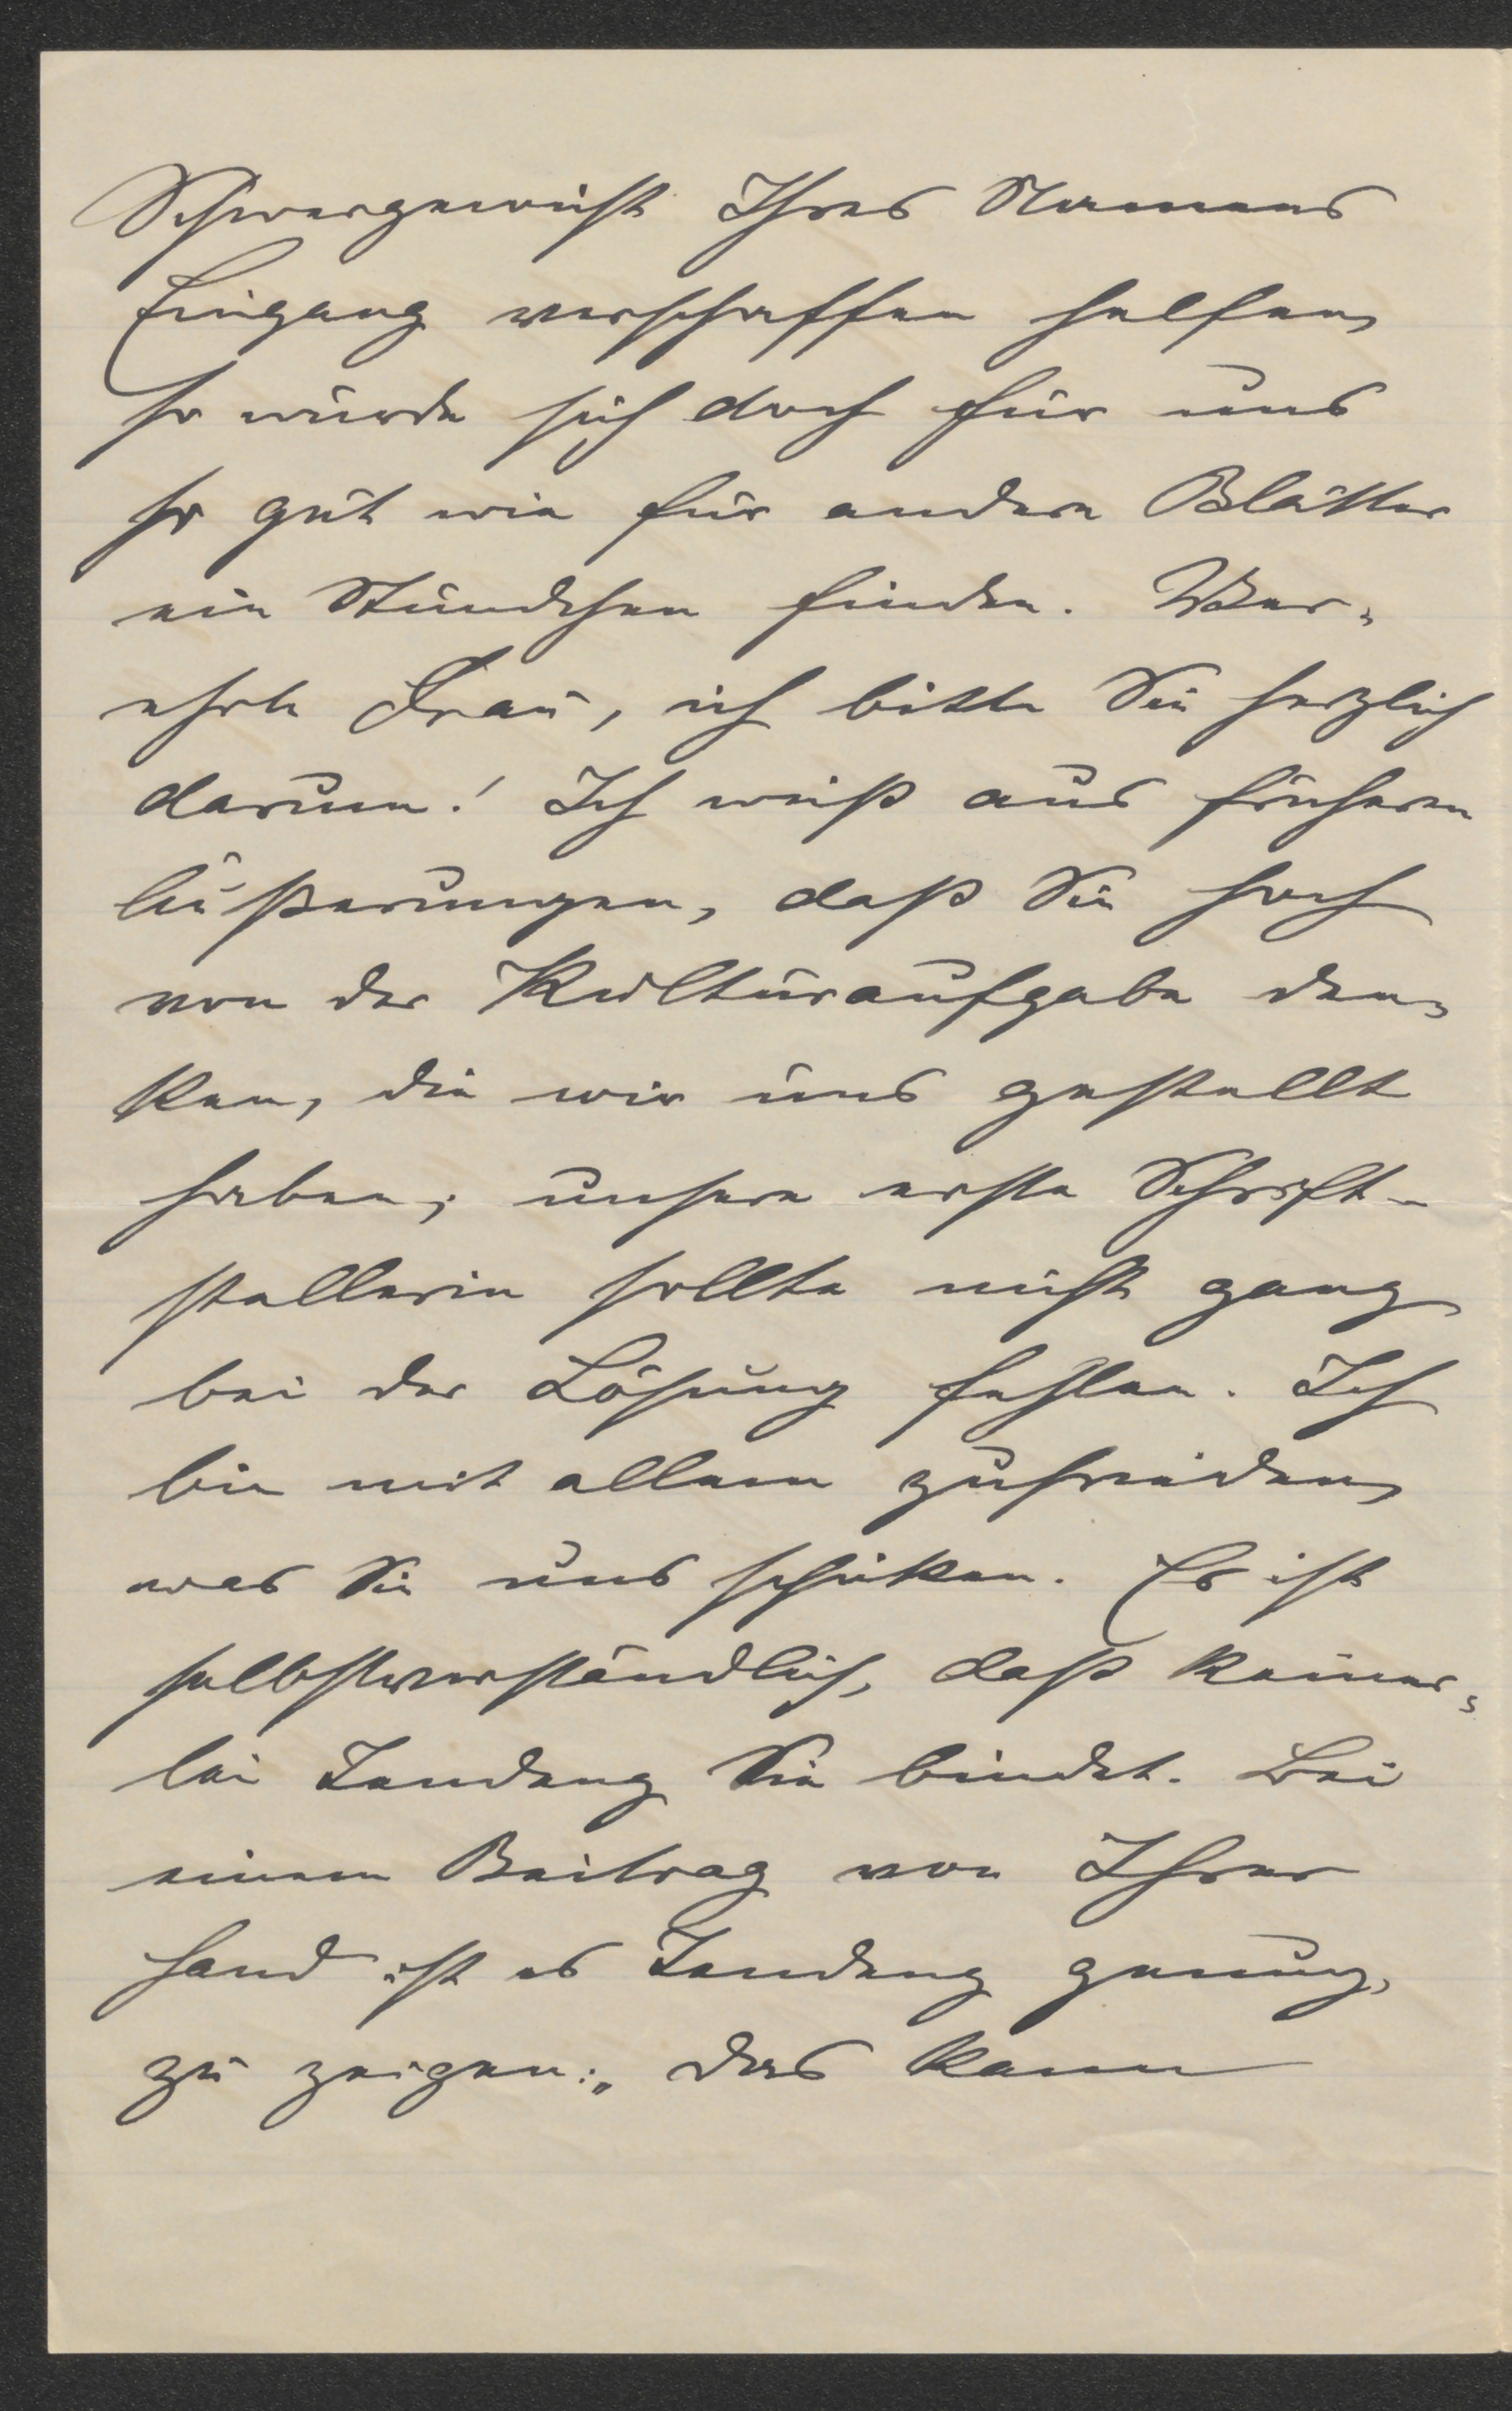 Schwergewicht Ihres Namens
Eingang verschaffen helfen,
so würde sich doch für uns
so gut wie für andere Blätter
ein Stündchen finden. Ver-
ehrte Frau, ich bitte Sie herzlich
darum! Ich weiß aus früheren
Äußerungen, daß Sie hoch
von der Kulturaufgabe den-
ken, die wir uns gestellt
haben; unsere erste Schrift-
stellerin sollte nicht ganz
bei der Lösung fehlen. Ich
bin mit allem zufrieden,
was Sie uns schicken. Es ist
selbstverständlich, daß keiner-
lei Tendenz Sie bindet. Bei
einem Beitrag von Ihrer
Hand ist es Tendenz genug,
zu zeigen: „das kann